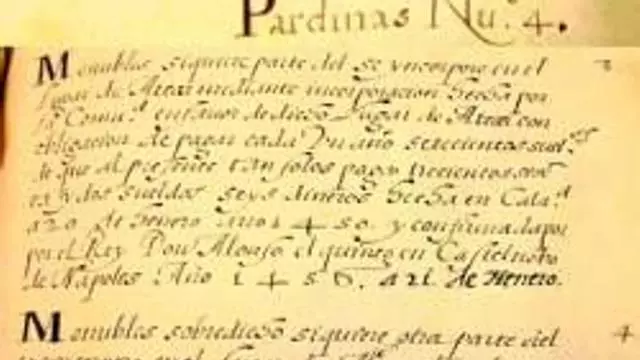 Pardinas Nu.º 4.
Monubles siquiere parte del se yncorporo en el
lugar de Ataz mediante incorporacion hecha por
Comu.d en favor de dicho Lugar de con
obligacion de pagar cada Un año setecientos suel.os
de que al presente tan solos pagan trecientos
ta y dos sueldos seys dineros hecha en Cala.d
a 20 de henero año 1450. y confirmada por
por el Rey Don Alonso el quinto en Castelnobo
de Napoles Año 1456. a 21. de Henero.
Monubles sobredicho siquiere otra parte del
4